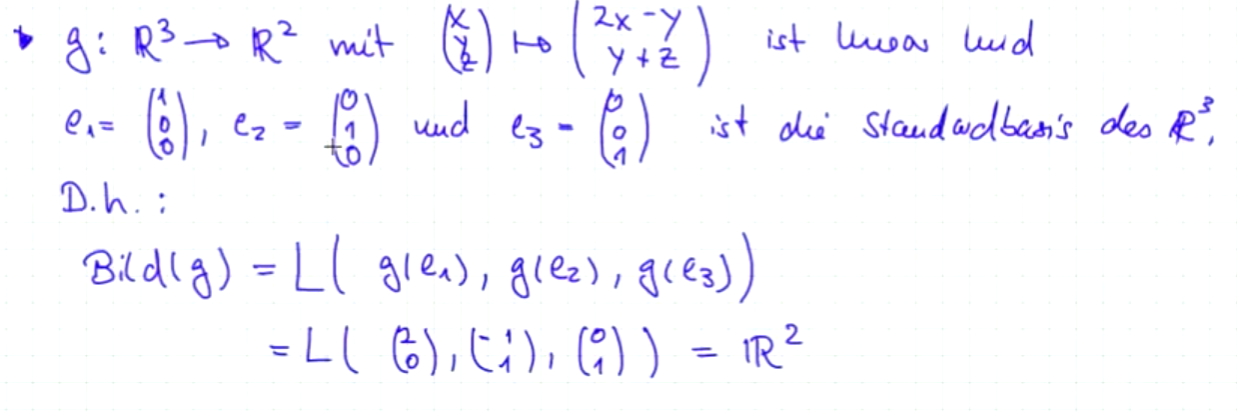 g: ℝ³ → ℝ² mit (x y z) ↦ (2x-y y+z) ist linear und
e₁= (1 0 0), e₂ = (0 1 0) und e₃ = (0 0 1) ist die Standardbasis des ℝ³.
D.h.:
Bild(g) = L( g(e₁), g(e₂), g(e₃))
= L( (2 0), (-1 1), (0 1) ) = ℝ²